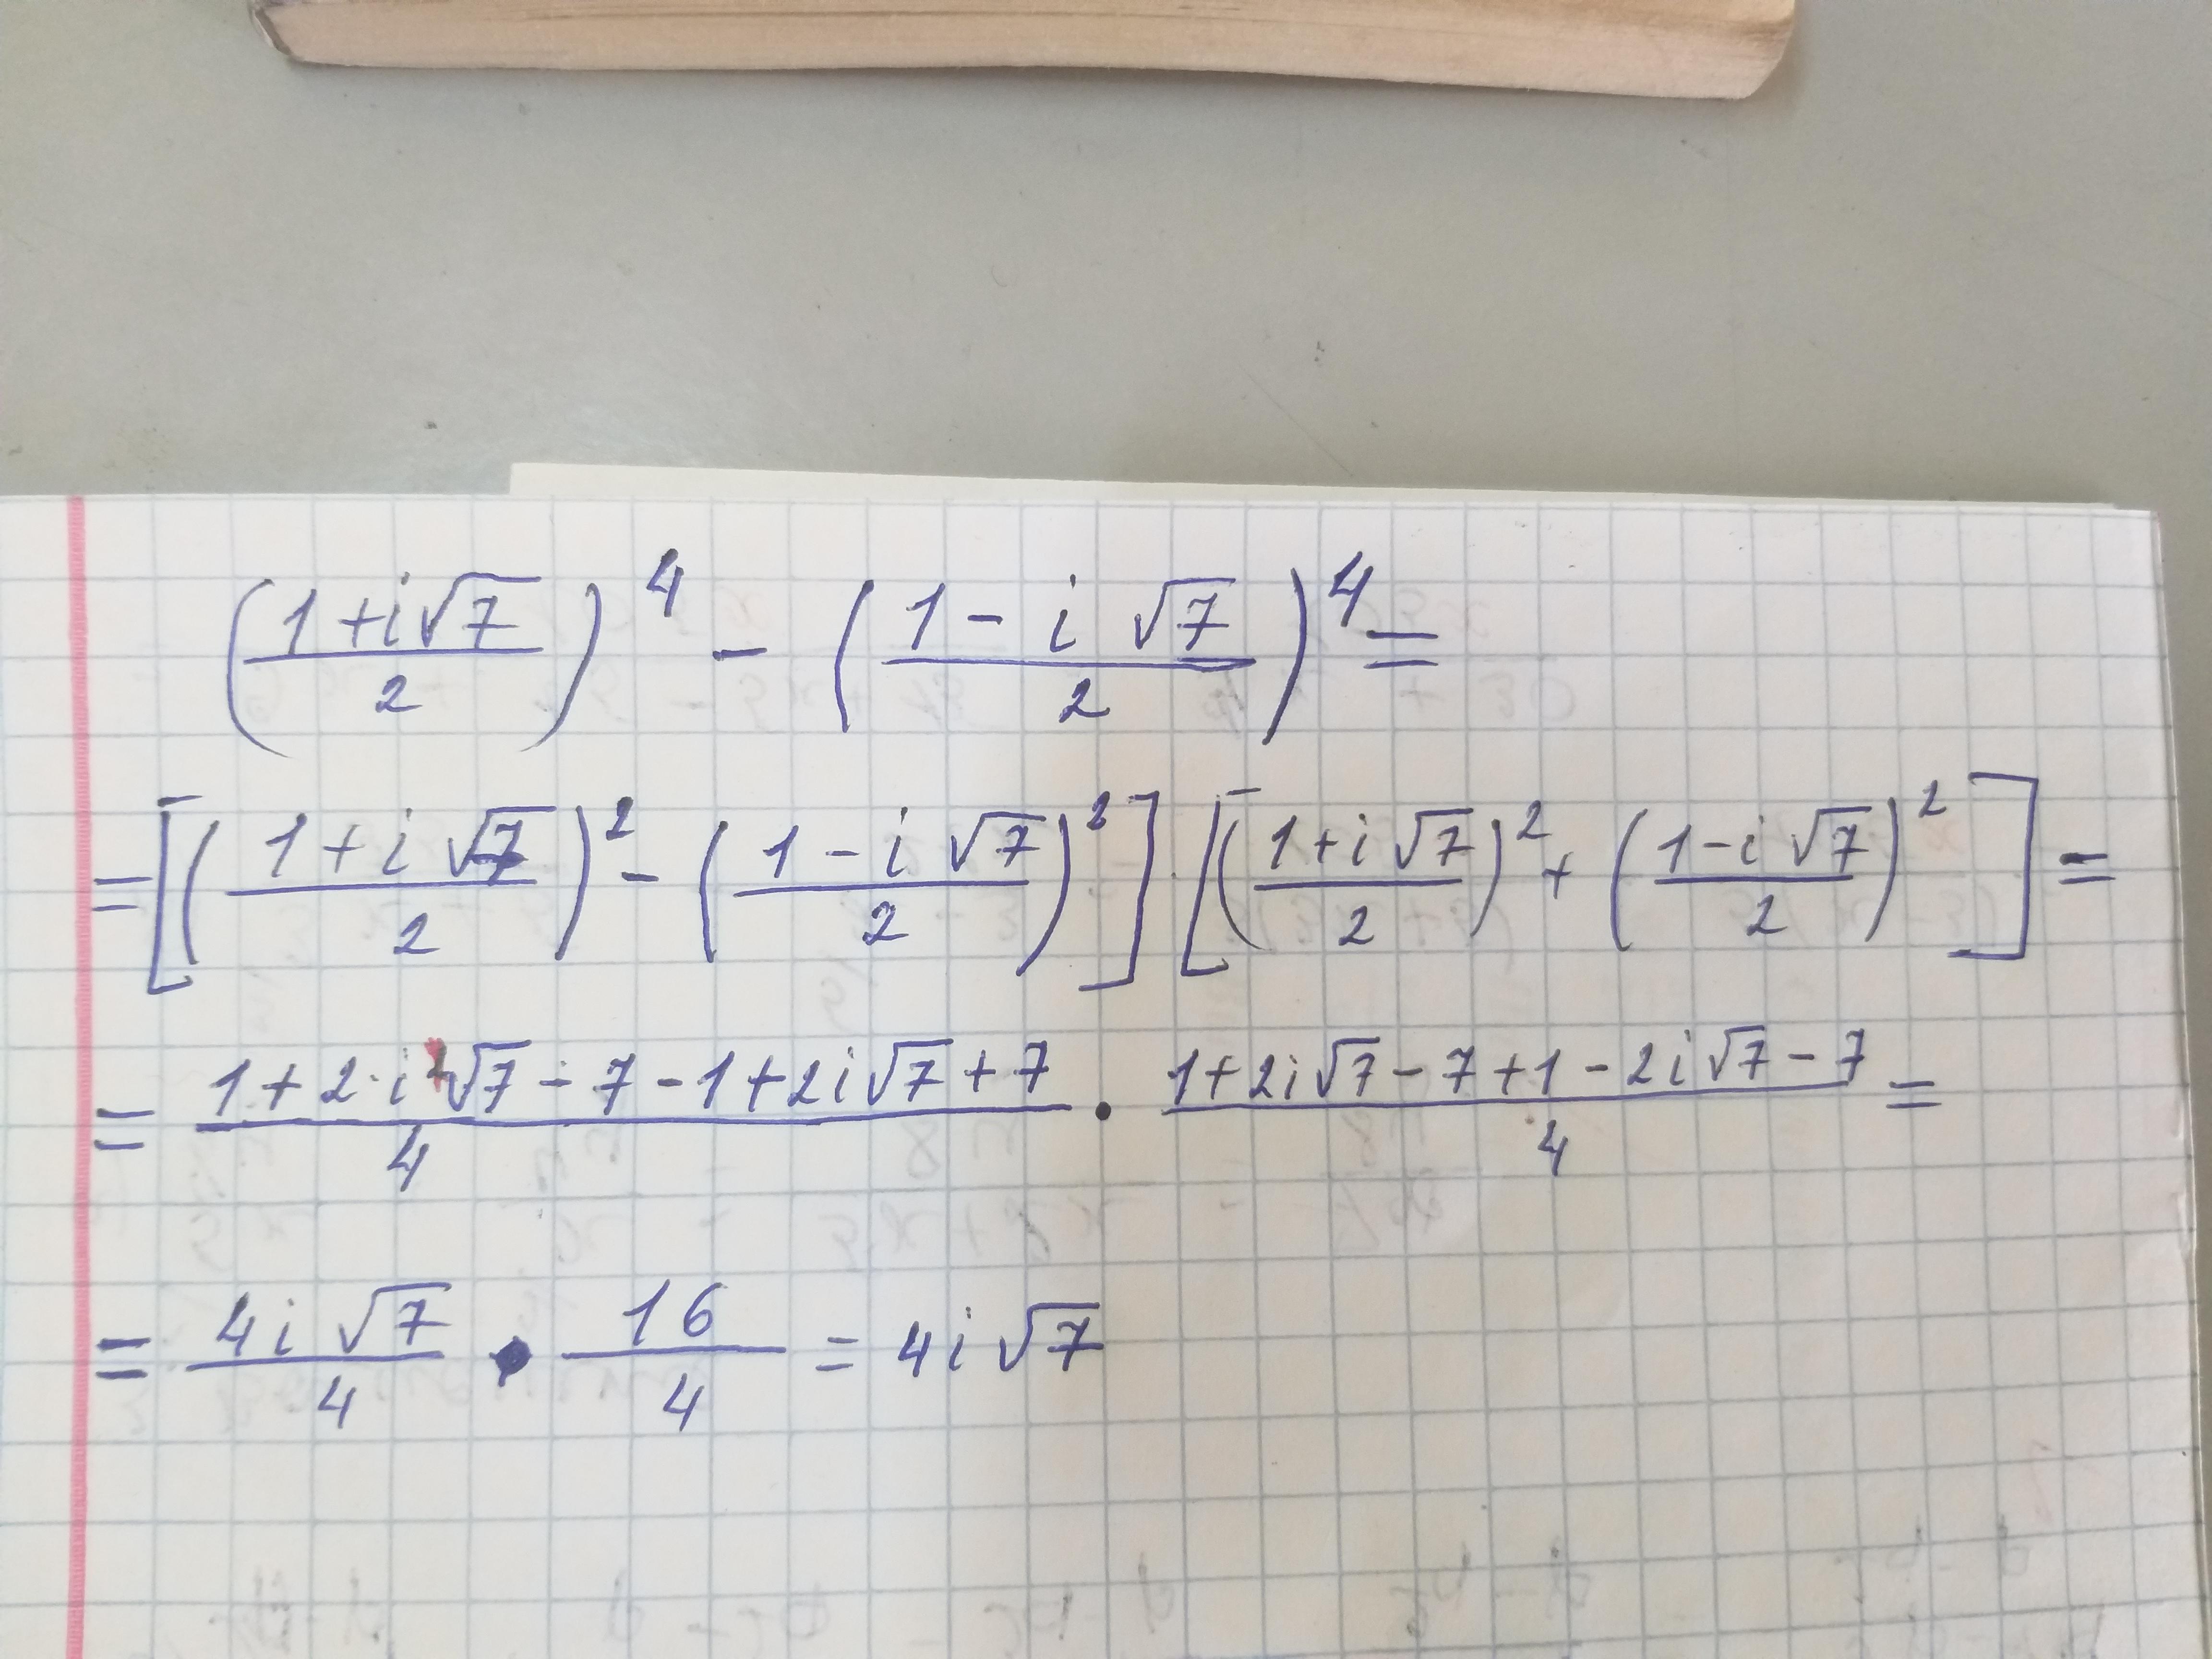 ((1+i√7)/2)^4 - ((1-i√7)/2)^4 =
= [((1+i√7)/2)^2 - ((1-i√7)/2)^2] [((1+i√7)/2)^2 + ((1-i√7)/2)^2] =
= (1+2·i√7-7-1+2i√7+7)/4 · (1+2i√7-7+1-2i√7-7)/4 =
= (4i√7)/4 · 16/4 = 4i√7